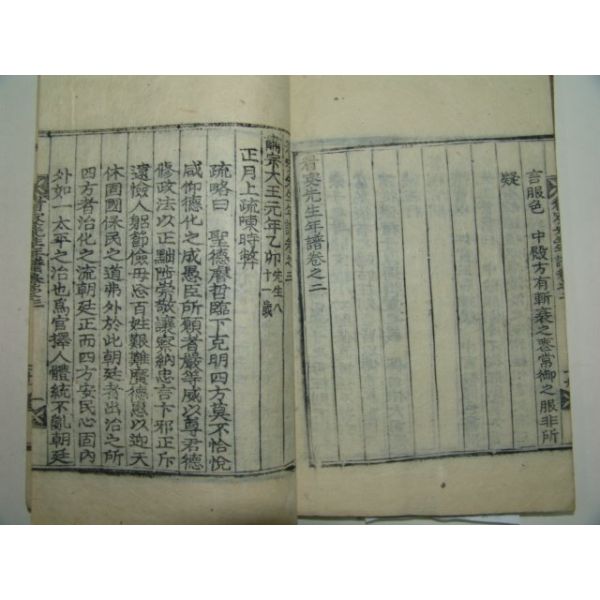 言服色 中殿方有斬衰之喪常御之服非所
疑
先生年譜卷之二
宗大王元年乙卯先生八十一歲
正月上疏陳時弊
疏略曰 聖德膺哲臨下克明四方莫不恰悅
咸仰德化之成愚臣所願者嚴等威以尊君德
修政法以正黜陟崇敬讓察納忠言卞邪正斥
遠憸人躬節儉毋念百姓艱難廣德惠以迎天
休固國保民之道弗外於此朝廷者出治之所
四方者治化之流朝廷正而四方安民心固內
外如一太平之治也爲官擇人體統不亂朝廷